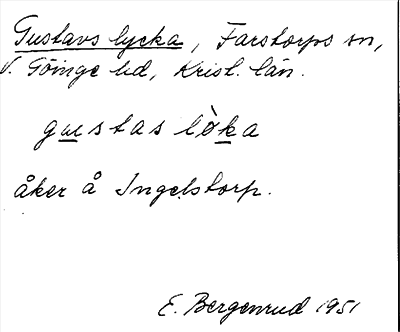 Gustavs lycka, Farstorps sn,
V. Göinge hd, Krist. län.
gustas lòka
åker å Ingelstorp.
E. Bergenrud 1951